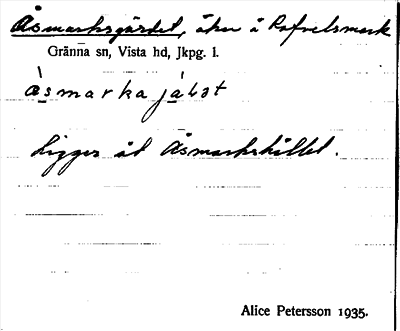 Åsmarksgärdet, åker å Rofvelsmark
Gränna sn, Vista hd, Jkpg. l.
åsmarka
Ligger åt Åsmarkshållet.
Alice Petersson 1935.